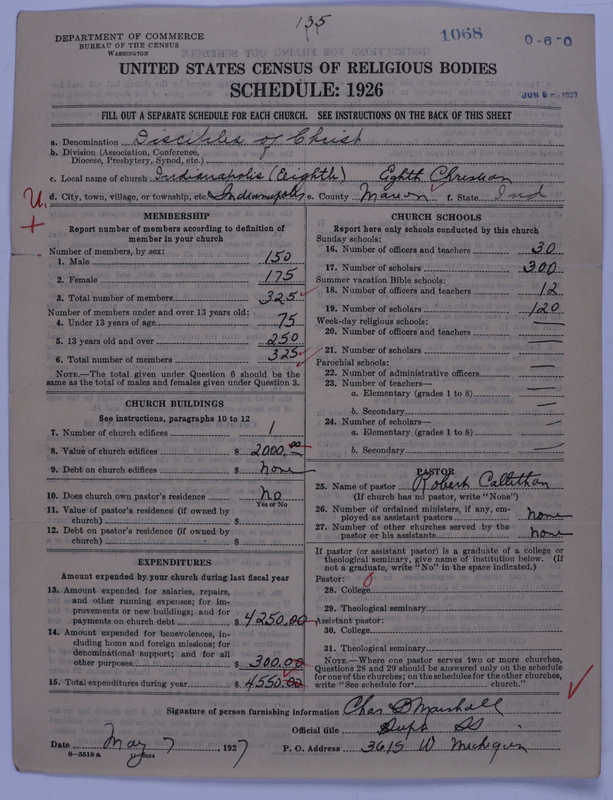 135
DEPARTMENT OF COMMERCE
BUREAU OF THE CENSUS
WASHINGTON
1068
0-6-0
UNITED STATES CENSUS OF RELIGIOUS BODIES
SCHEDULE: 1926
JUN 6 - 1927
FILL OUT A SEPARATE SCHEDULE FOR EACH CHURCH. SEE INSTRUCTIONS ON THE BACK OF THIS SHEET
a. Denomination Disciples of Christ
b. Division (Association, Conference, Diocese, Presbytery, Synod, etc.)
c. Local name of church Indianapolis (Eighth) Eighth Christian
U. +
d. City, town, village, or township, etc. Indianapolis e. County Marion f. State Ind
MEMBERSHIP
Report number of members according to definition of
member in your church
Number of members, by sex:
1. Male 150
2. Female 175
3. Total number of members 325
Number of members under and over 13 years old:
4. Under 13 years of age 75
5. 13 years old and over 250
6. Total number of members 325
NOTE.—The total given under Question 6 should be the
same as the total of males and females given under Question 3.
CHURCH BUILDINGS
See instructions, paragraphs 10 to 12
7. Number of church edifices 1
8. Value of church edifices $ 2000.00
9. Debt on church edifices $ none
10. Does church own pastor's residence no
Yes or No
11. Value of pastor's residence (if owned by
church) $
12. Debt on pastor's residence (if owned by
church) $
EXPENDITURES
Amount expended by your church during last fiscal year
13. Amount expended for salaries, repairs,
and other running expenses; for im-
provements or new buildings; and for
payments on church debt $ 4250.00
14. Amount expended for benevolences, in-
cluding home and foreign missions; for
denominational support; and for all
other purposes $ 300.00
15. Total expenditures during year $ 4550.00
CHURCH SCHOOLS
Report here only schools conducted by this church
Sunday schools:
16. Number of officers and teachers 30
17. Number of scholars 300
Summer vacation Bible schools:
18. Number of officers and teachers 12
19. Number of scholars 120
Week-day religious schools:
20. Number of officers and teachers —
21. Number of scholars —
Parochial schools:
22. Number of administrative officers —
23. Number of teachers—
a. Elementary (grades 1 to 8) —
b. Secondary —
24. Number of scholars—
a. Elementary (grades 1 to 8) —
b. Secondary —
PASTOR
25. Name of pastor Robert
(If church has no pastor, write "None")
26. Number of ordained ministers, if any, em-
ployed as assistant pastors none
27. Number of other churches served by the
pastor or his assistants none
If pastor (or assistant pastor) is a graduate of a college or
theological seminary, give name of institution below. (If
not a graduate, write "No" in the space indicated.)
Pastor:
28. College
29. Theological seminary
Assistant pastor:
30. College
31. Theological seminary
NOTE.—Where one pastor serves two or more churches,
Questions 28 and 29 should be answered only on the schedule
for one of the churches; on the schedules for the other churches,
write "See schedule for church."
Signature of person furnishing information Chas D Marshall
Official title Supt SS
Date May 7, 1927 P. O. Address 3615 W Michigan
8-5518a